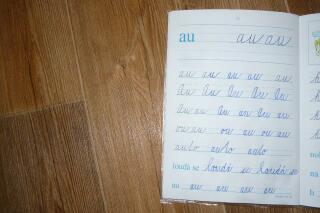 au au au
au au au au au
Au Au Au Au Au Au
Au au Au au Au au
ou au ou au ou au
auto auto auto
loudá se loudá se
au au au au au